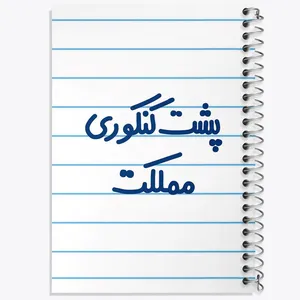 پشت کنکوری
مملکت